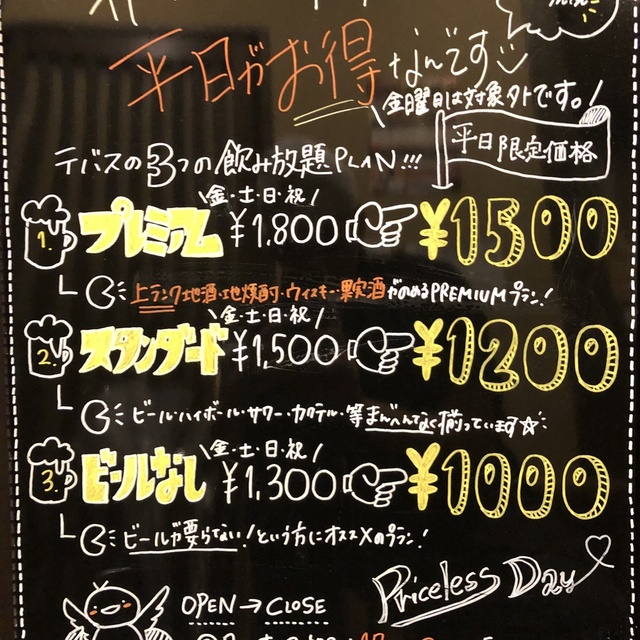 平日がお得なんです
金曜日は対象外です。
平日限定価格
テバスの3つの飲み放題PLAN!!!
金・土・日・祝
1. プレミアム ¥1,800 ¥1500
上ランク地酒・地焼酎・ウィスキー・果実酒がのめるPREMIUMプラン!
金・土・日・祝
2. スタンダード ¥1,500 ¥1200
ビール・ハイボール・サワー・カクテル・等まんべんなく揃っています☆
金・土・日・祝
3. ビールなし ¥1,300 ¥1000
ビールが要らない!という方にオススメのプラン!
Priceless Day
OPEN→CLOSE